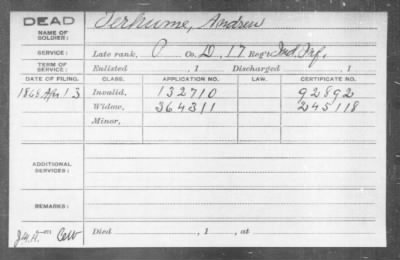 DEAD
NAME OF SOLDIER: Terhume, Andrew
SERVICE: Late rank, P Co. D, 17 Reg't Ind. Inf.
TERM OF SERVICE: Enlisted , 1 Discharged , 1
DATE OF FILING. CLASS. APPLICATION NO. LAW. CERTIFICATE NO.
1868 Apr 13 Invalid, 132710 92892
Widow, 364311 245118
Minor,
ADDITIONAL SERVICES:
REMARKS:
Died , 1 , at